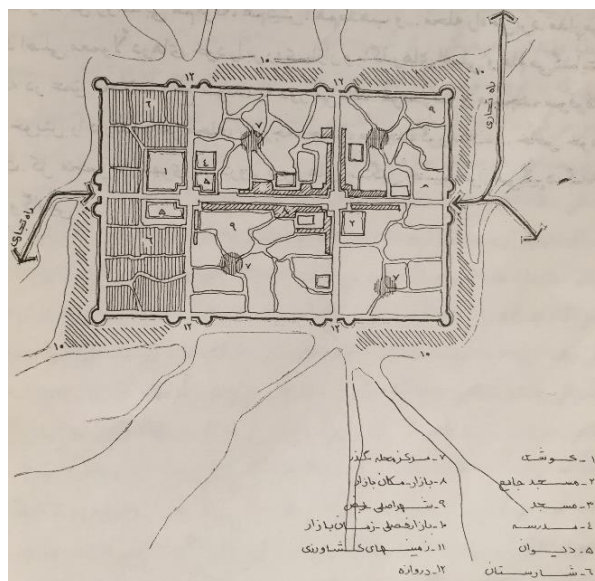 ۱۲
۱۰
۱۲
۱۰
راه تجاری
۶
۷
۹
۴
۱
۵
۸
۵
۸
۲
راه تجاری
۶
۹
۷
۷
۱۰
۱۲
۱۲
۱۰
۱- کوشک
۲- مسجد جامع
۳- مسجد
۴- مدرسه
۵- دیوان
۶- شارستان
۷- مرکز محله گذر
۸- بازار - مکان بازار
۹- شهر اصلی ربض
۱۰- بازار فصلی - زمان بازار
۱۱- زمینهای کشاورزی
۱۲- دروازه